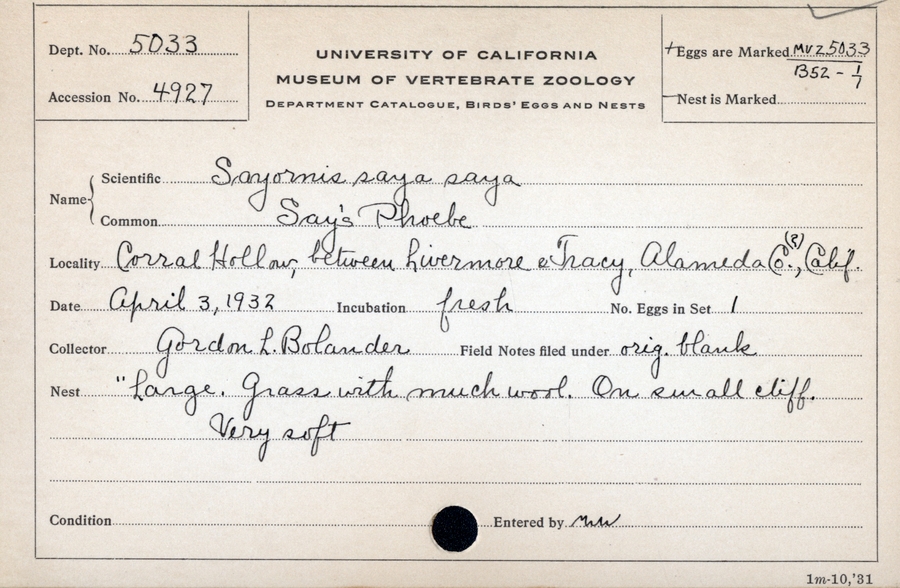 Dept. No. 5033
Accession No. 4927
UNIVERSITY OF CALIFORNIA
MUSEUM OF VERTEBRATE ZOOLOGY
DEPARTMENT CATALOGUE, BIRDS' EGGS AND NESTS
+Eggs are Marked MVZ5033
B52 - 1/1
—Nest is Marked
Name { Scientific Sayornis saya saya
Common Say's Phoebe
Locality Corral Hollow, between Livermore & Tracy, Alameda Co.(?), Calif.
Date April 3, 1932 Incubation fresh No. Eggs in Set 1
Collector Gordon L. Bolander Field Notes filed under orig. blank
Nest "Large. Grass with much wool. On small cliff.
Very soft
Condition Entered by
1m-10,'31